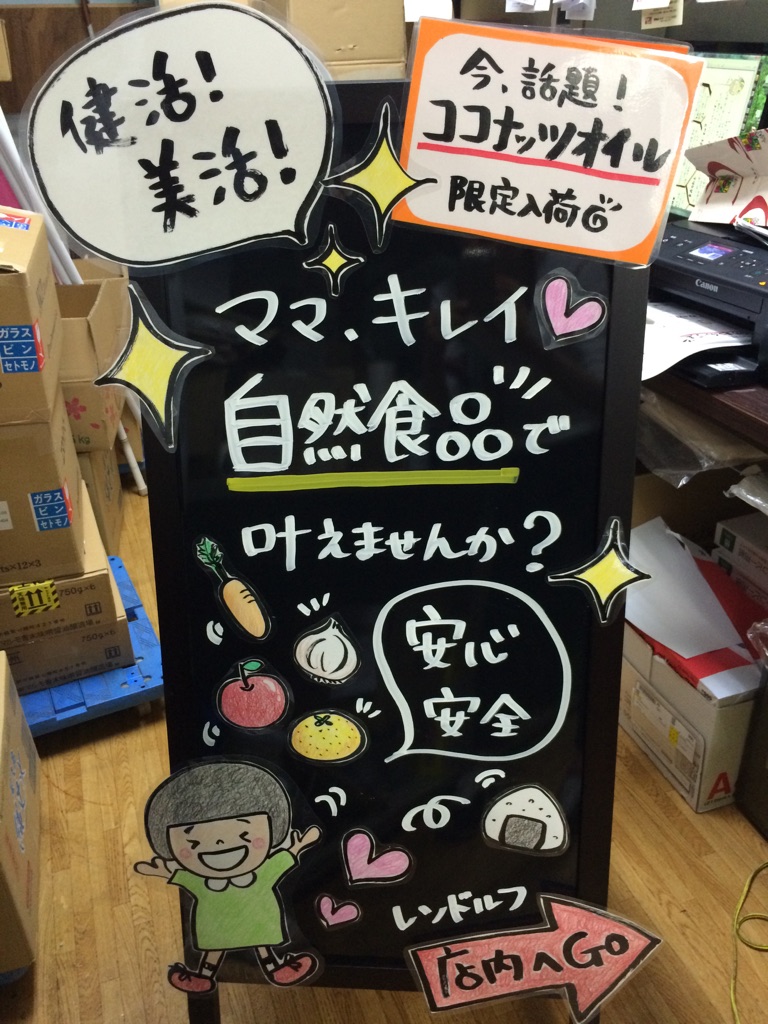 健活!
美活!
今、話題!
ココナッツオイル
限定入荷
ママ、キレイ
自然食品で
叶えませんか?
安心
安全
レンドルフ
店内へGO
Canon
ガラス
ビン
セトモノ
ガラス
ビン
セトモノ
750g×6
750g×6
A